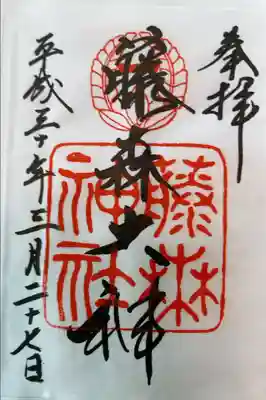 奉拝
藤森神社
藤森
神社
平成三十年三月二十七日